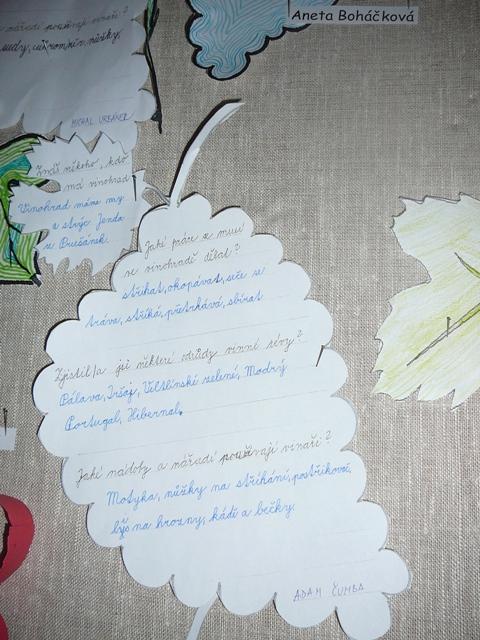 Aneta Boháčková
nářadí používají vinaři?
sudy,
MICHAL URBÁNEK
Znáš někoho, kdo
má vinohrad
Vinohrad máme my
a strýc Jenda
ze Bušánek.
Jaké práce se musí
ve vinohradě dělat?
stříhat, okopávat, seče se
tráva, stříká, přetrhává, sbírat
Zjistil/a jsi některé odrůdy vinné révy?
Pálava, Iršaj, Veltlínské zelené, Modrý
Portugal, Hibernal.
Jaké nádoby a nářadí používají vinaři?
Motyka, nůžky na stříhání, postřikovač,
lýs na hrozny, kádě a bečky.
ADAM ČUMBA